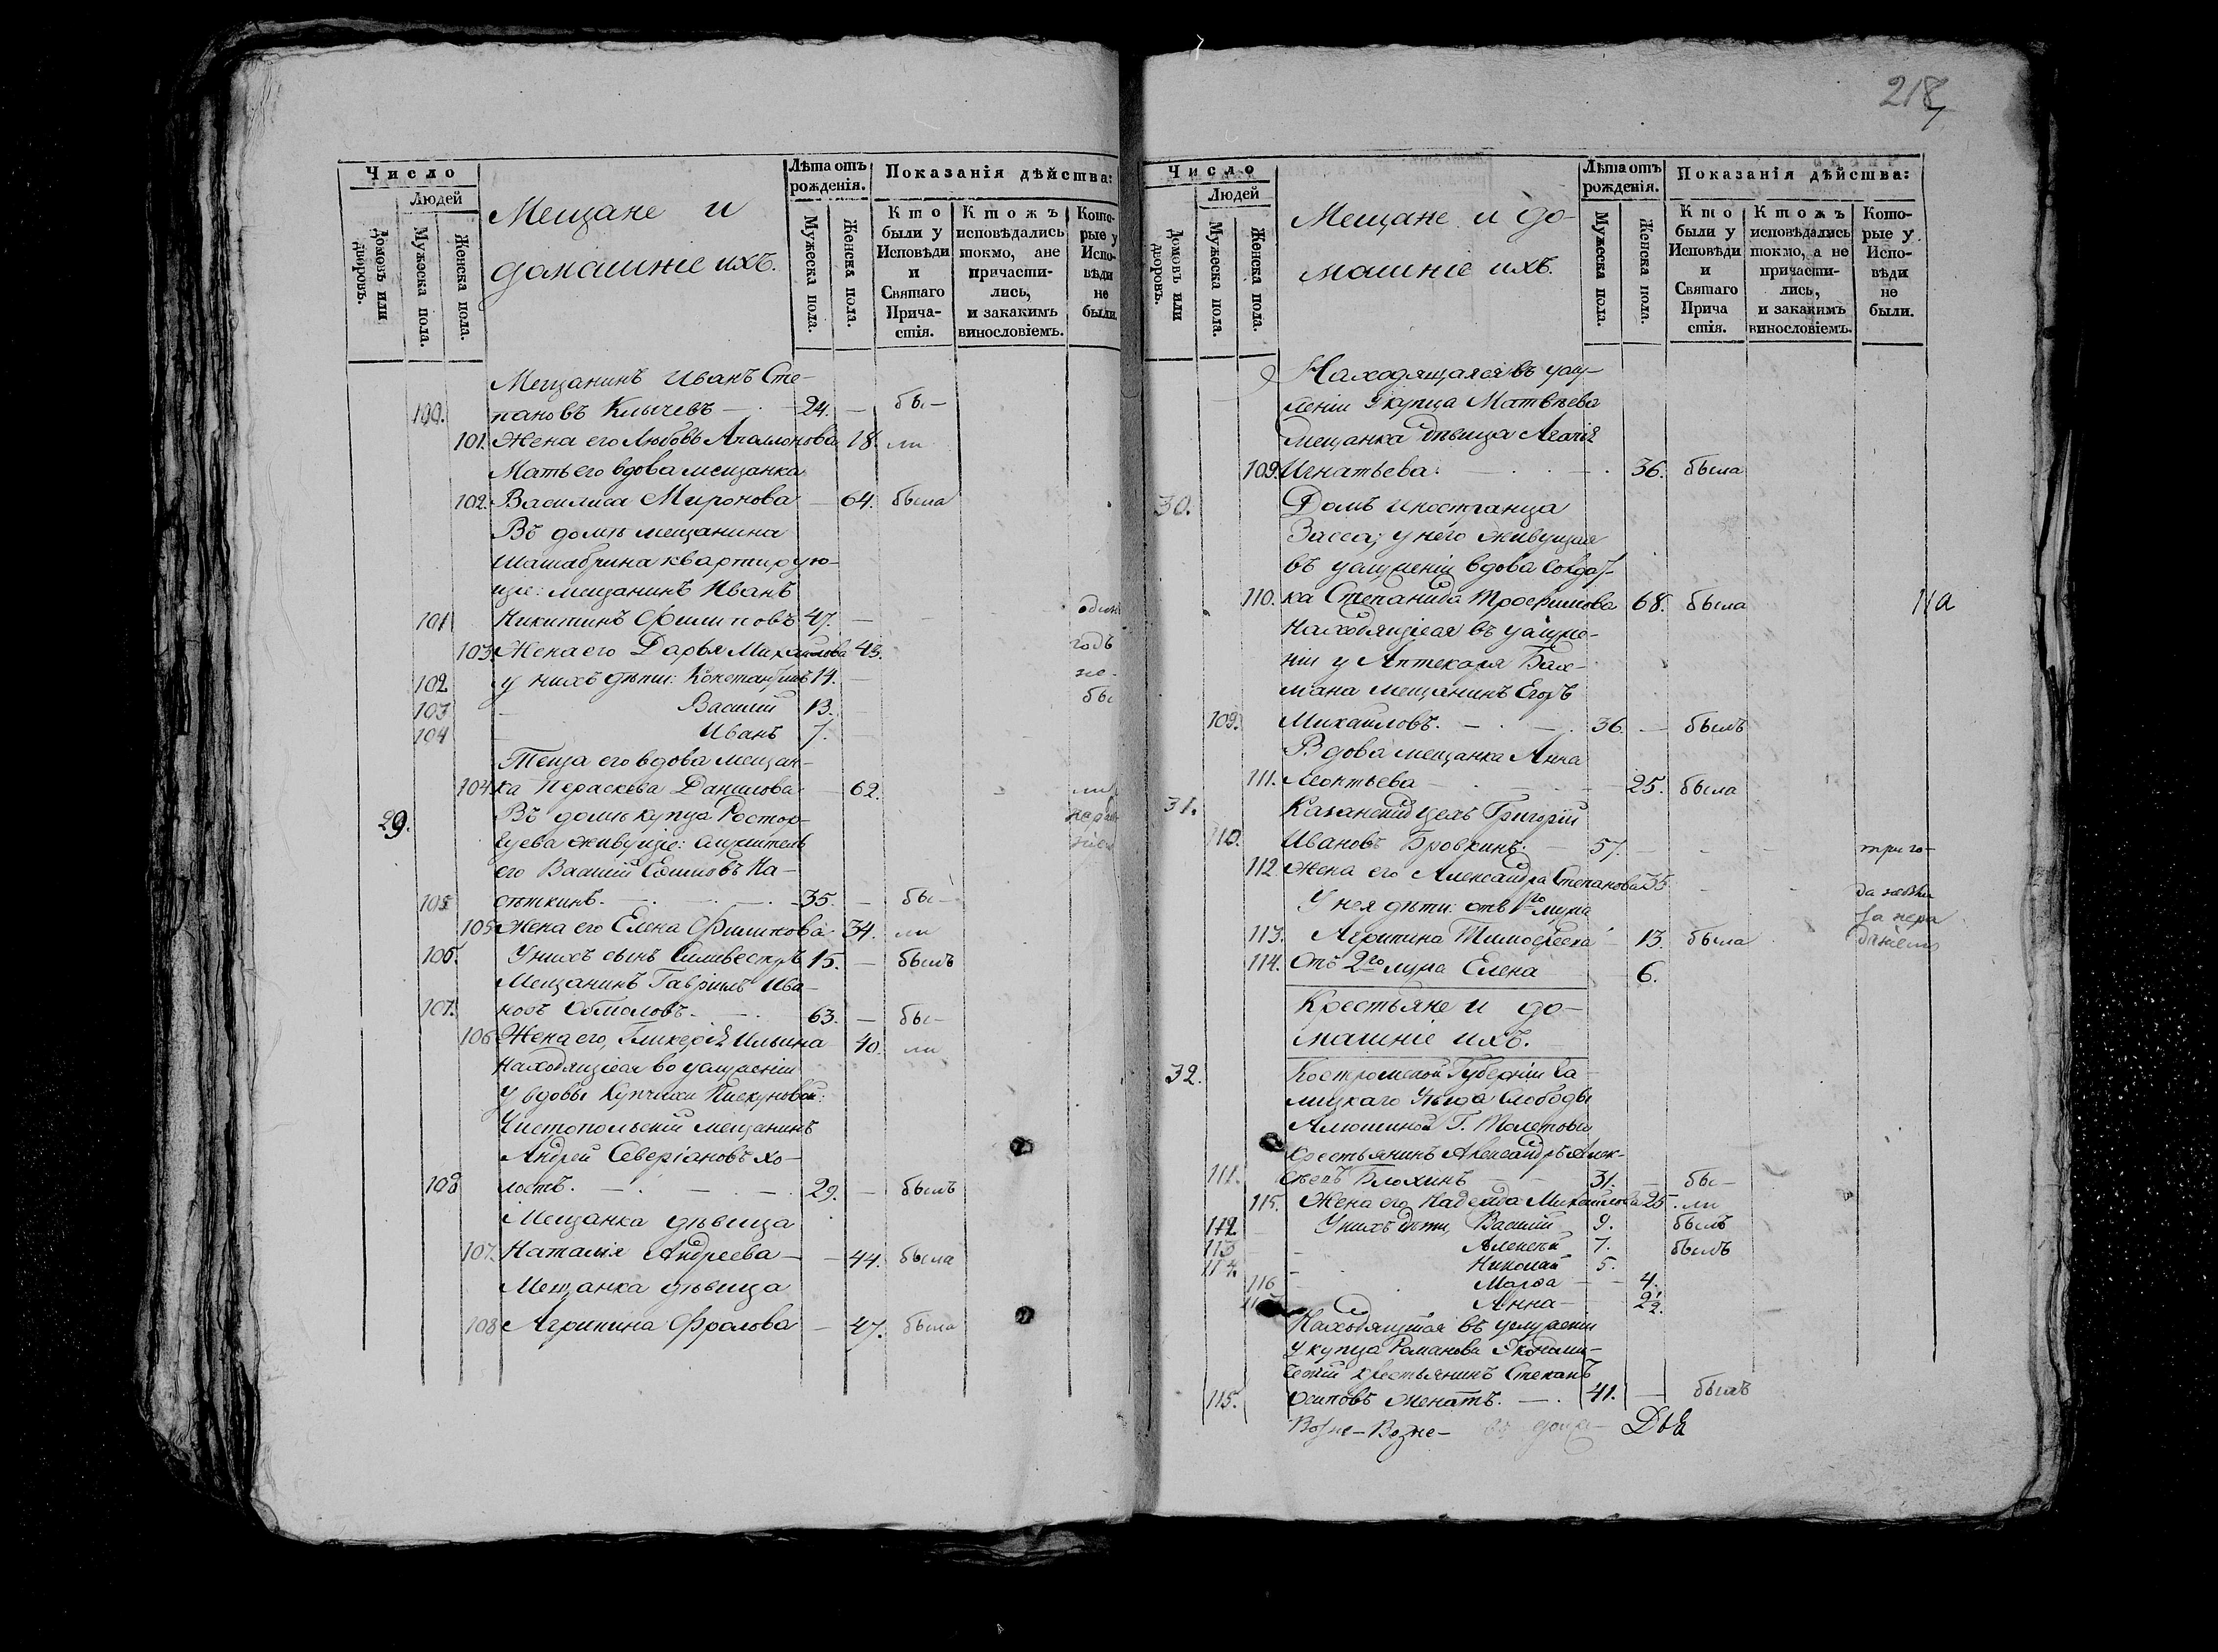 218
Число
Людей
Домовъ или дворовъ.
Мужеска пола.
Женска пола.
Мещане и
домашніе ихъ.
Лѣта отъ рожденія.
Мужеска пола.
Женска пола.
Показанія дѣйства:
Кто были у Исповѣди и Святаго Прича-стія.
Ктожъ исповѣдались токмо, ане причасти-лись, и закакимъ винословіемъ.
Кото-рые у Испо-вѣди не были.
Мещанинъ Иванъ Сте-
100. пановъ Клычевъ — 24. — бы-
101. Жена его Любовь Аполлонова 18. ли
Мать его вдова мещанка
102. Василиса Миронова — 64. была
Въ домѣ мещанина
Шашабрина квартирую-
щіе: мещанинъ Иванъ
101 Никитинъ Филиповъ 47. —
103. Жена его Дарья Михайлова 43. годъ
102 у нихъ дѣти: Констан 14. — не
103 Василій 13. — бы
104 Иванъ 7.
Теща его вдова мещан-
104. ка Параскева Данилова — 62.
29. Въ домѣ купца Растор-
гуева живущіе: служитель
его Василій
105 35. — бы-
105. Жена его Елена Филипова 34. ли
106. У нихъ сынъ Силивестръ 15. — былъ
Мещанинъ Гавріилъ Ива-
107. новъ 63. — бы-
106 Жена его, Гликерія Ильина 40. ли
Находящіеся во услуженіи
у вдовы Купчихи Пискуновой:
Чистопольскій мещанинъ
Андрей Северіановъ хо-
108 лостъ. 29. — былъ
Мещанка дѣвица
107. Наталія Андреева — 44. была
Мещанка дѣвица
108 Агрипина Фролова — 47. была
Число
Людей
Домовъ или дворовъ.
Мужеска пола.
Женска пола.
Мещане и до-
машніе ихъ.
Лѣта отъ рожденія.
Мужеска пола.
Женска пола.
Показанія дѣйства:
Кто были у Исповѣди и Святаго Прича стія.
Ктожъ исповѣдались токмо, а не причасти-лись, и закакимъ винословіемъ.
Кото-рые у Испо-вѣди не были.
Находящаяся въ услу-
женіи у купца Матвѣева
мещанка дѣвица
109. Игнатьева. 36. была
30. Домъ иностранца
Засса; у него живущая
въ услуженіи вдова Солдат-
110. ка Степанида Трофимова 68. была
Находящіеся въ услуже-
ніи у Аптекаря Бах-
мана мещанинъ Егоръ
109. Михайловъ. 36. — былъ
Вдова мещанка Анна
111. Леонтьева 25. была
31. Казанскій цехъ Григорій
110. Ивановъ Бровкинъ. 57. три го-
112 Жена его Александра Степанова 35
У нея дѣти: отъ 1го мужа
113. Агрипина Тимофеева — 13. была
114. Отъ 2го мужа Елена 6.
Крестьяне и до-
машніе ихъ.
32. Костромской Губерніи Га-
лицкаго Уѣзда Слободы
Г. Толстова
крестьянинъ Александръ Алек-
111. сѣевъ Блохинъ 31. — бы-
115. Жена его Надежда Михайлова 25. ли
112 У нихъ дѣти, Василій 9. былъ
113 Алексѣй 7. былъ
114. Николай 5.
116 Марѳа — 4.
Анна — 2½.
Находящійся въ услуженіи
у купца Романова Экономи-
ческій крестьянинъ Степанъ
115. Осиповъ женатъ. 41. — былъ